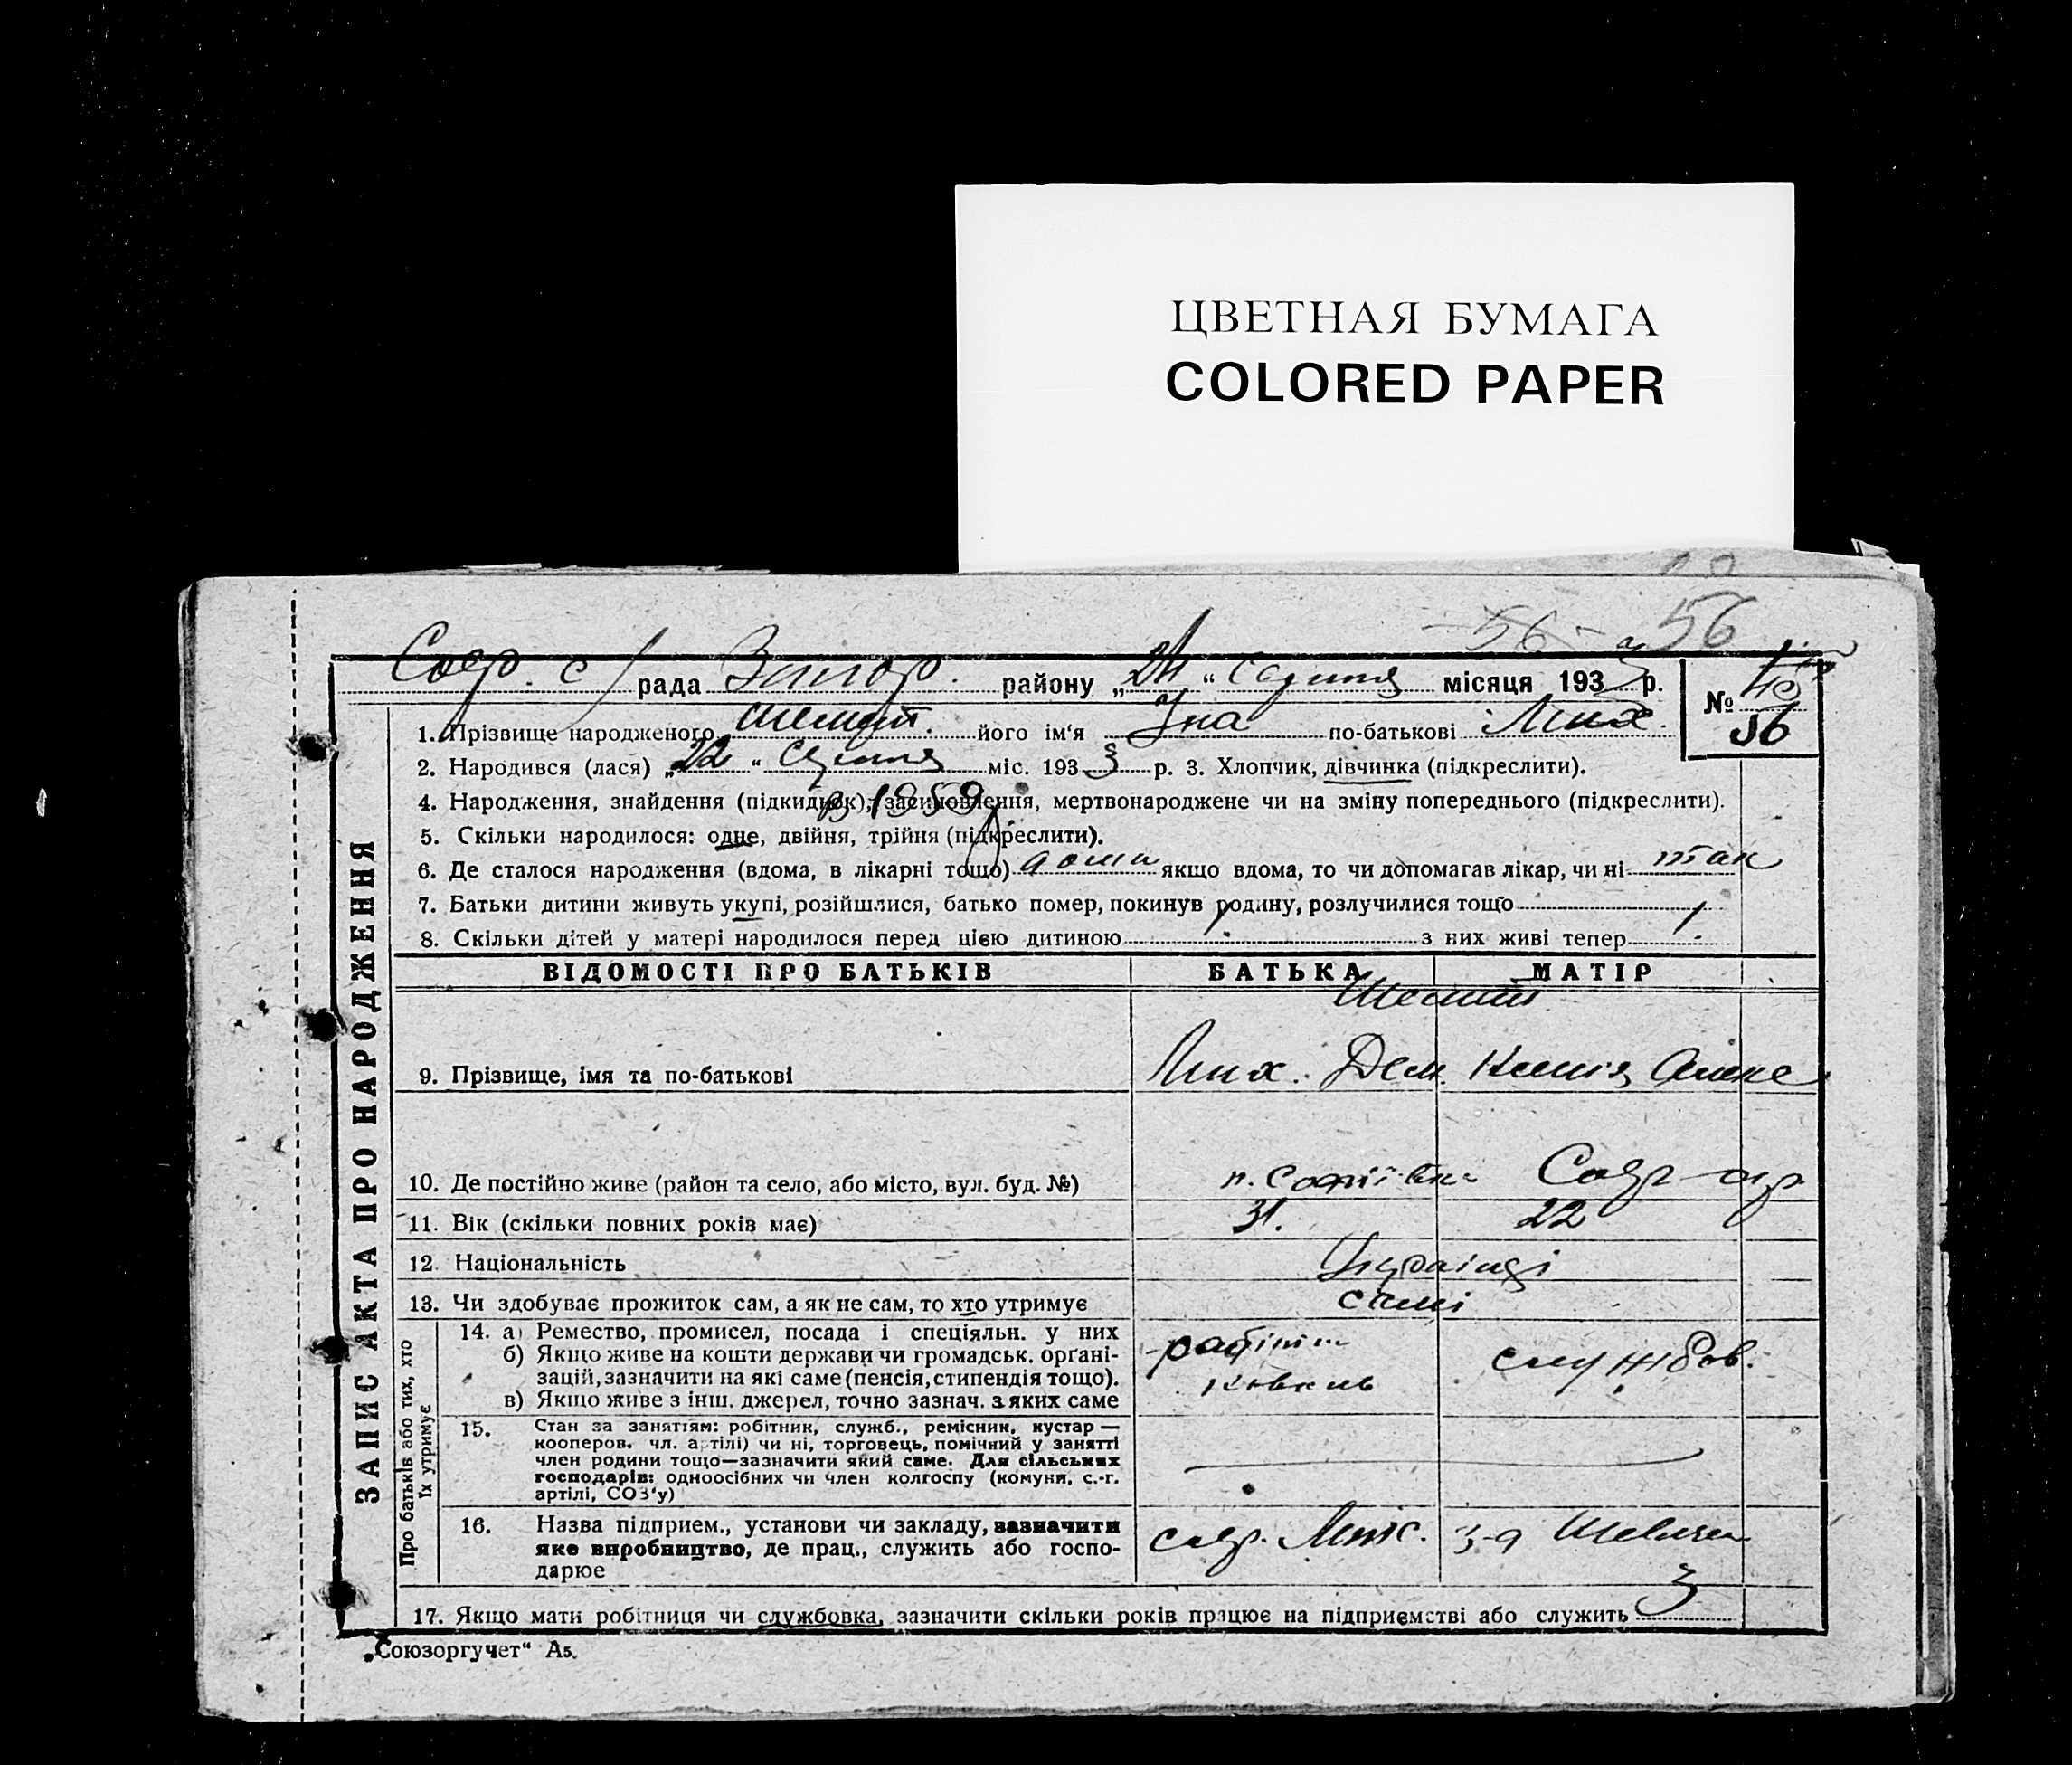 ЦВЕТНАЯ БУМАГА
COLORED PAPER
56 56
рада району „24“ Серпня місяця 1933 р. №
56
1. Прізвище народженого його ім'я по-батькові Мих.
2. Народився (лася) „22“ Серпня міс. 1933 р. 3. Хлопчик, дівчинка (підкреслити).
4. Народження, знайдення (підкидюк), засиновлення, мертвонароджене чи на зміну попереднього (підкреслити).
5. Скільки народилося: одне, двійня, трійня (підкреслити).
6. Де сталося народження (вдома, в лікарні тощо) дома якщо вдома, то чи допомагав лікар, чи ні так
7. Батьки дитини живуть укупі, розійшлися, батько помер, покинув родину, розлучилися тощо
8. Скільки дітей у матері народилося перед цією дитиною 1 з них живі тепер 1
ВІДОМОСТІ ПРО БАТЬКІВ БАТЬКА МАТІР
9. Прізвище, імя та по-батькові Мих. Дем.
10. Де постійно живе (район та село, або місто, вул. буд. №) п. Софіївка
11. Вік (скільки повних років має) 31. 22
12. Національність Українці
13. Чи здобуває прожиток сам, а як не сам, то хто утримує самі
14. а) Ремество, промисел, посада і спеціяльн. у них
б) Якщо живе на кошти держави чи громадськ. орґані-
зацій, зазначити на які саме (пенсія, стипендія тощо).
в) Якщо живе з інш. джерел, точно зазнач. з яких саме
робітн коваль
службов.
15. Стан за занятіям: робітник, служб., ремісник, кустар —
кооперов. чл. артілі) чи ні, торговець, помічний у занятті
член родини тощо—зазначити який саме. Для сільських
господарів: одноосібних чи член колгоспу (комуни, с.-г.
артілі, СОЗ'у)
16. Назва підприєм., установи чи закладу, зазначити
яке виробництво, де прац., служить або госпо-
дарюе
17. Якщо мати робітниця чи службовка, зазначити скільки років працює на підприємстві або служить 3
„Союзоргучет“ А5.
ЗАПИС АКТА ПРО НАРОДЖЕННЯ
Про батьків або тих, хто
їх утримує